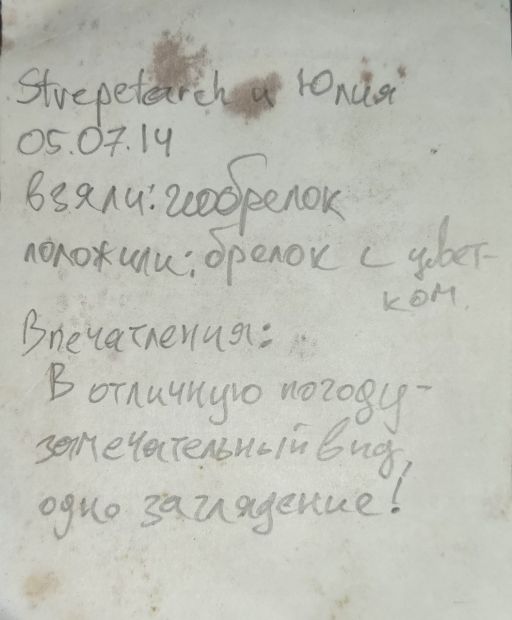 Strepetarch и Юлия
05.07.14
взяли: геобрелок
положили: брелок с цвет-
ком.
Впечатления:
В отличную погоду -
замечательный вид,
одно заглядение!